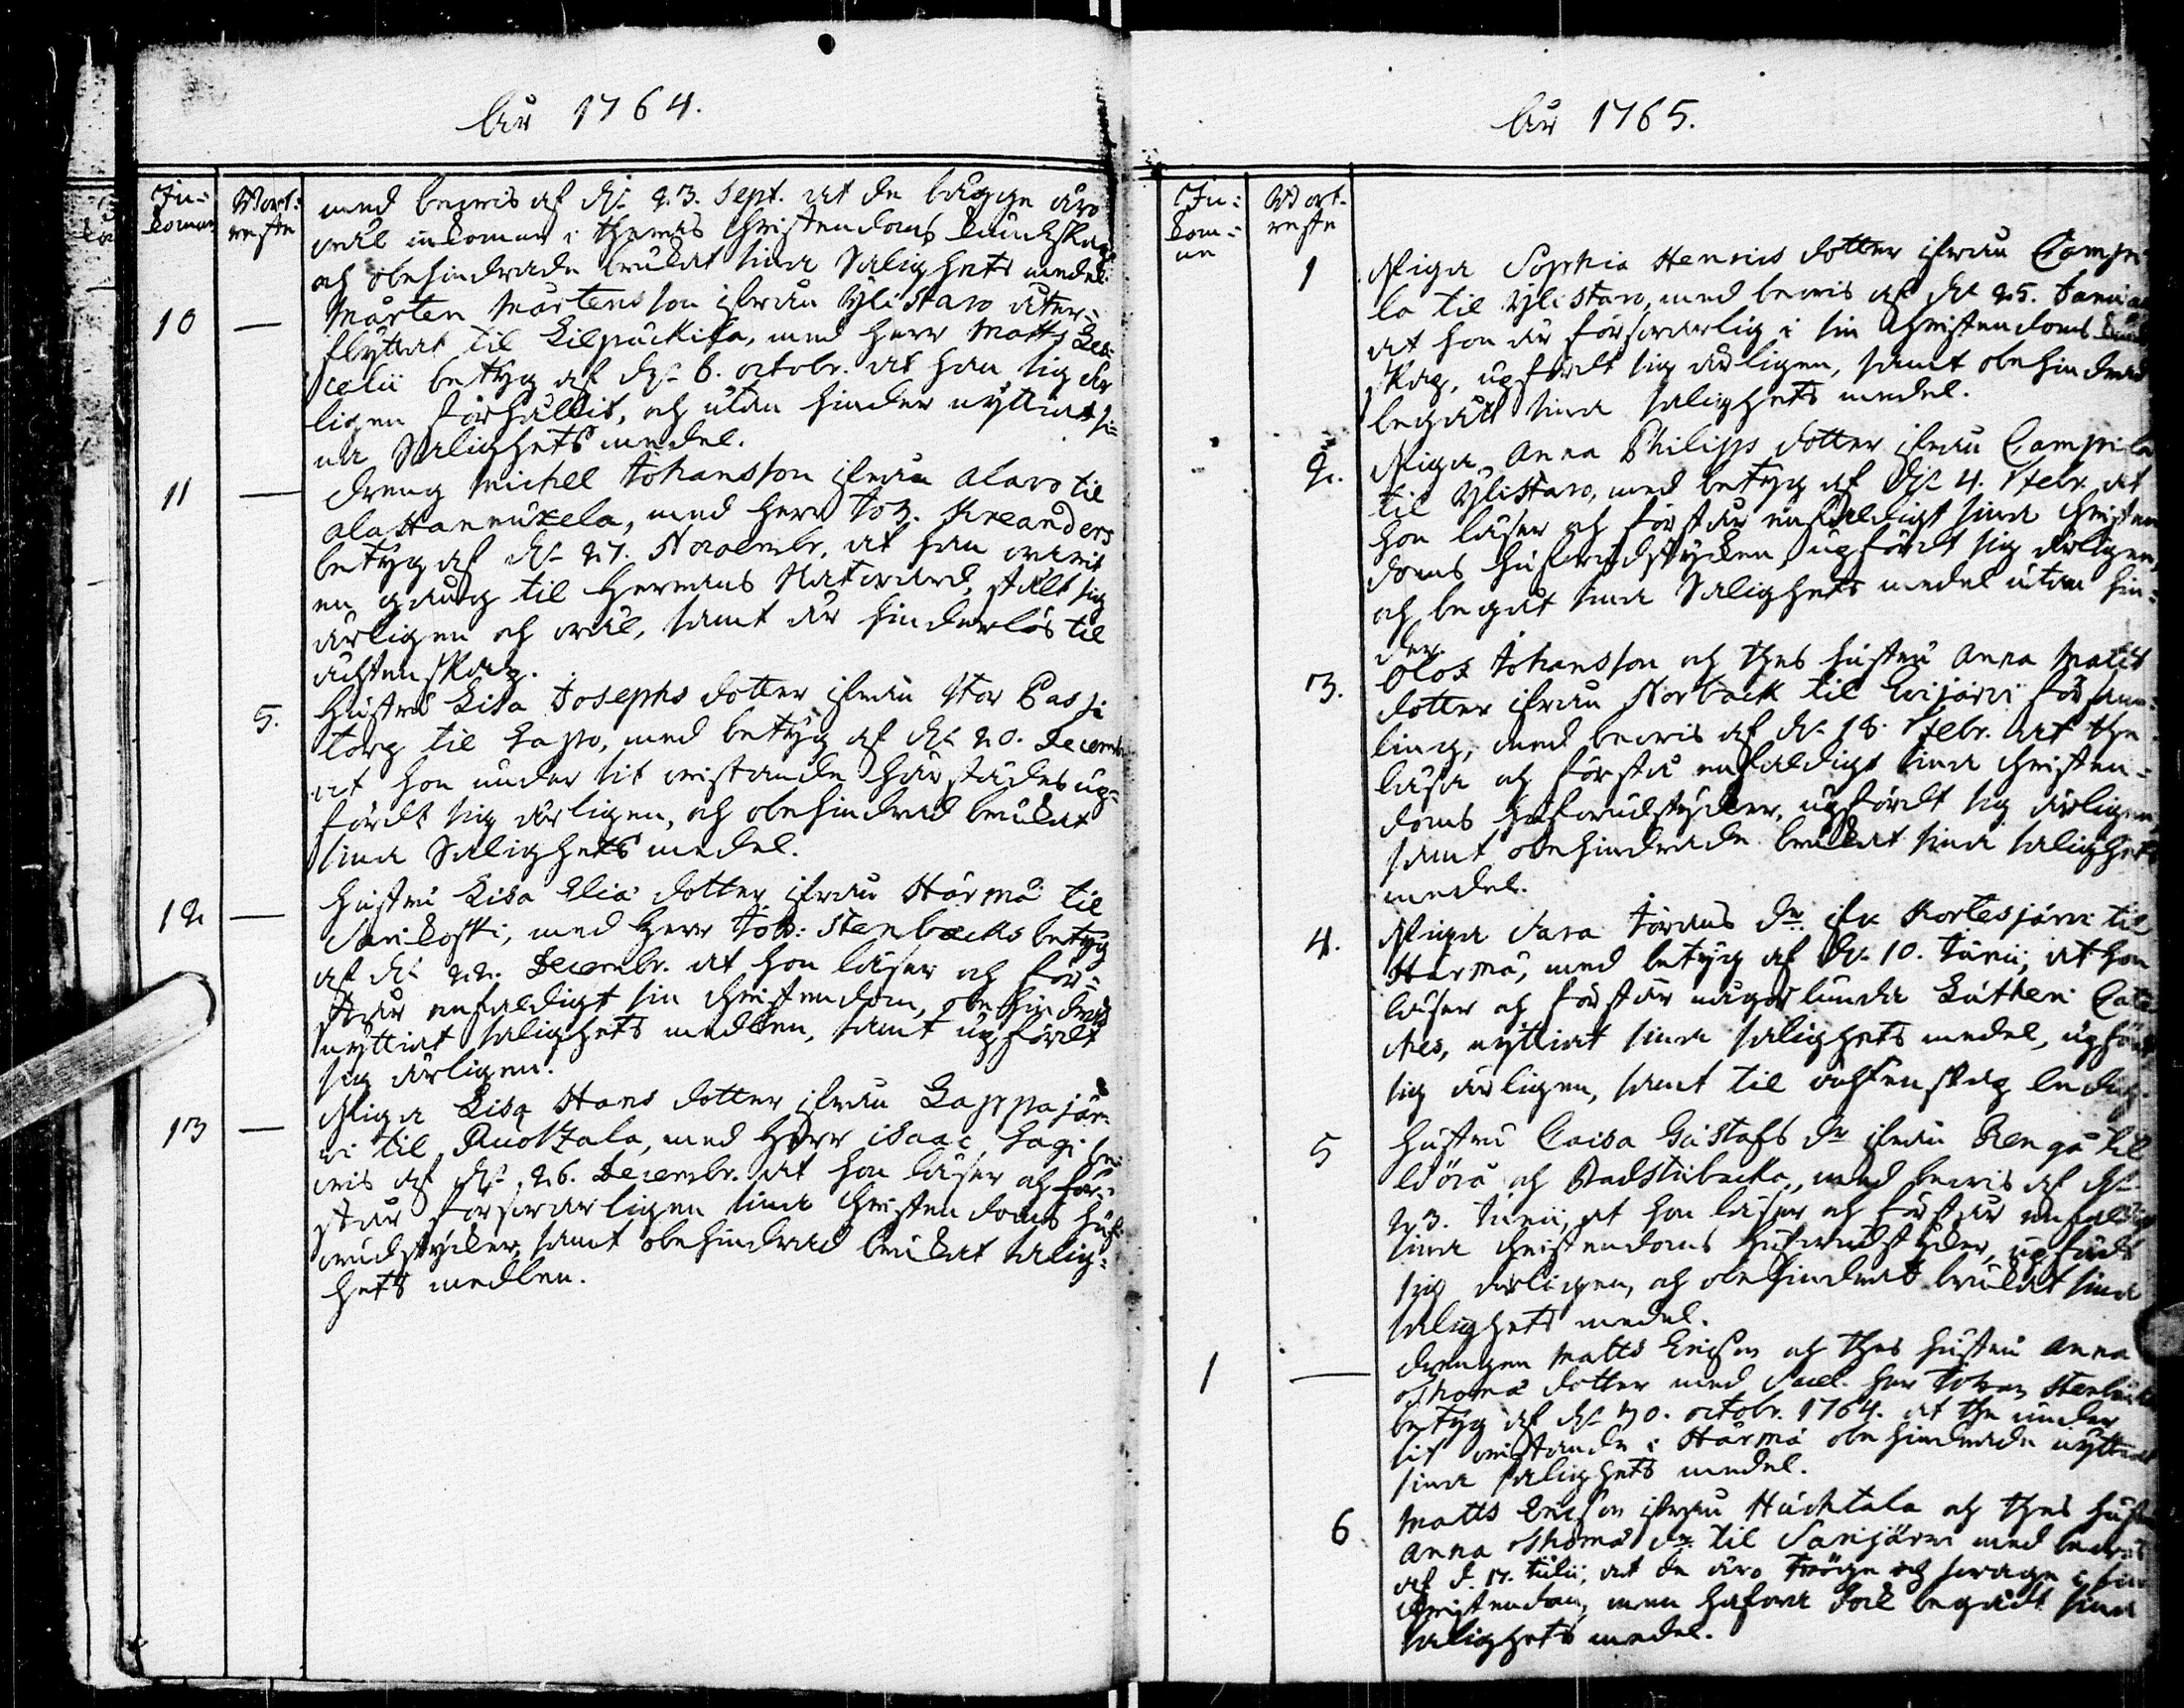 Åhr 1764.
In-
komne
Wort-
reste
med bewis af d. 23. Sept. at de bägge äro
wäl inkomne i theras Christendoms kundskap
och obehindrade brukat sina Salighets medel.
10 — Mårten Mårtensson ifrån Ylistaro åter-
flyttat til Kilpuckila, med Herr Matts
betyg af d. 6. octobr. at han sig är
ligen förhållit, och utan hinder nyttiat si-
na Salighets medel.
11 — Dreng Michel Johansson ifrån Alavo til
Ala Hannuxela, med Herr Joh. Kreanders
betyg af d. 27. Novembr. at han warit
en gång til Herrans Nattward, stält sig
ärligen och wäl, samt är hinderlös til
ächtenskap.
5. Hustru Lisa Josephs dotter ifrån Stor Passi
torp til Lapo, med betyg af d. 20. Decembr
at hon under sit wistande härstädes up-
fördt sig ärligen, och obehindrad brukat
sina Salighets medel.
12 — Hustru Lisa Eliæ dotter ifrån Härmä til
Sarikoski, med Herr Joh: Stenbäcks betyg
af d. 22. Decembr. at hon läser och för-
står enfaldigt sin Christendom, obehindrad
nyttiat salighets medlen, samt upfördt
sig ärligen.
13 — Piga Lisa Hans dotter ifrån Lappajär-
vi til Ruotzala, med Herr Isaac be-
wis af d. 26. Decembr. at hon läser och för-
står försvarligen sina Christendoms huf-
wudstycker, samt obehindrad brukat salig-
hets medlen.
Åhr 1765.
In-
kom-
ne
Wort-
reste
1 Piga Sophia Henrics dotter ifrån Campi
la til Ylistaro, med bewis af d. 25. Januar
at hon är försvarlig i sin Christendoms kund
skap, upfördt sig ärligen, samt obehindrad
begått sina salighets medel.
2. Piga Anna Philips dotter ifrån Campila
til Ylistaro, med betyg af d. 4. Febr. at
hon läser och förstår enfaldigt sina Christen
doms hufwudstycken, upfördt sig ärligen,
och begåt sina Salighets medel utan hin-
der.
3. Olof Johansson och thes hustru Anna Matts
dotter ifrån Storbäck til Evijärvi försam-
ling, med bewis af d. 18. Febr. at the
läsa och förstå enfaldigt sina Christen-
doms hufwudstycker, upfördt sig ärligen,
samt obehindrade brukat sina salighets
medel.
4. Piga Sara Jörans dr ifr. Kortesjärvi til
Härmä, med betyg af d. 10. Junii, at hon
läser och förstår någorlunda Lutheri Cate
ches, nyttiat sina salighets medel, upfördt
sig ärligen, samt til ächtenskap ledig.
5 Hustru Caisa Gustafs dr ifrån Rengo til
Wörå och Badstubacka, med bewis af d.
23. Junii, at hon läser och förstår enfaldigt
sina Christendoms hufwudstycker, upfördt
sig ärligen, och obehindrat brukat sina
salighets medel.
1 — Drengen Matts Ericson och thes hustru Anna
Thomæ dotter med Sacel. herr Johan Stenbäcks
betyg af d. 30. octobr. 1764. at the under
sit wistande i Härmä obehindrade nyttiat
sina salighets medel.
6 Matts Ericson ifrån Huchtala och thes hustru
Anna Thomæ dr til Sarijärvi med bewis
af d. 17. Julii, at de äro tröge och swage i sin
Christendom, men hafwa dock begådt sina
salighets medel.